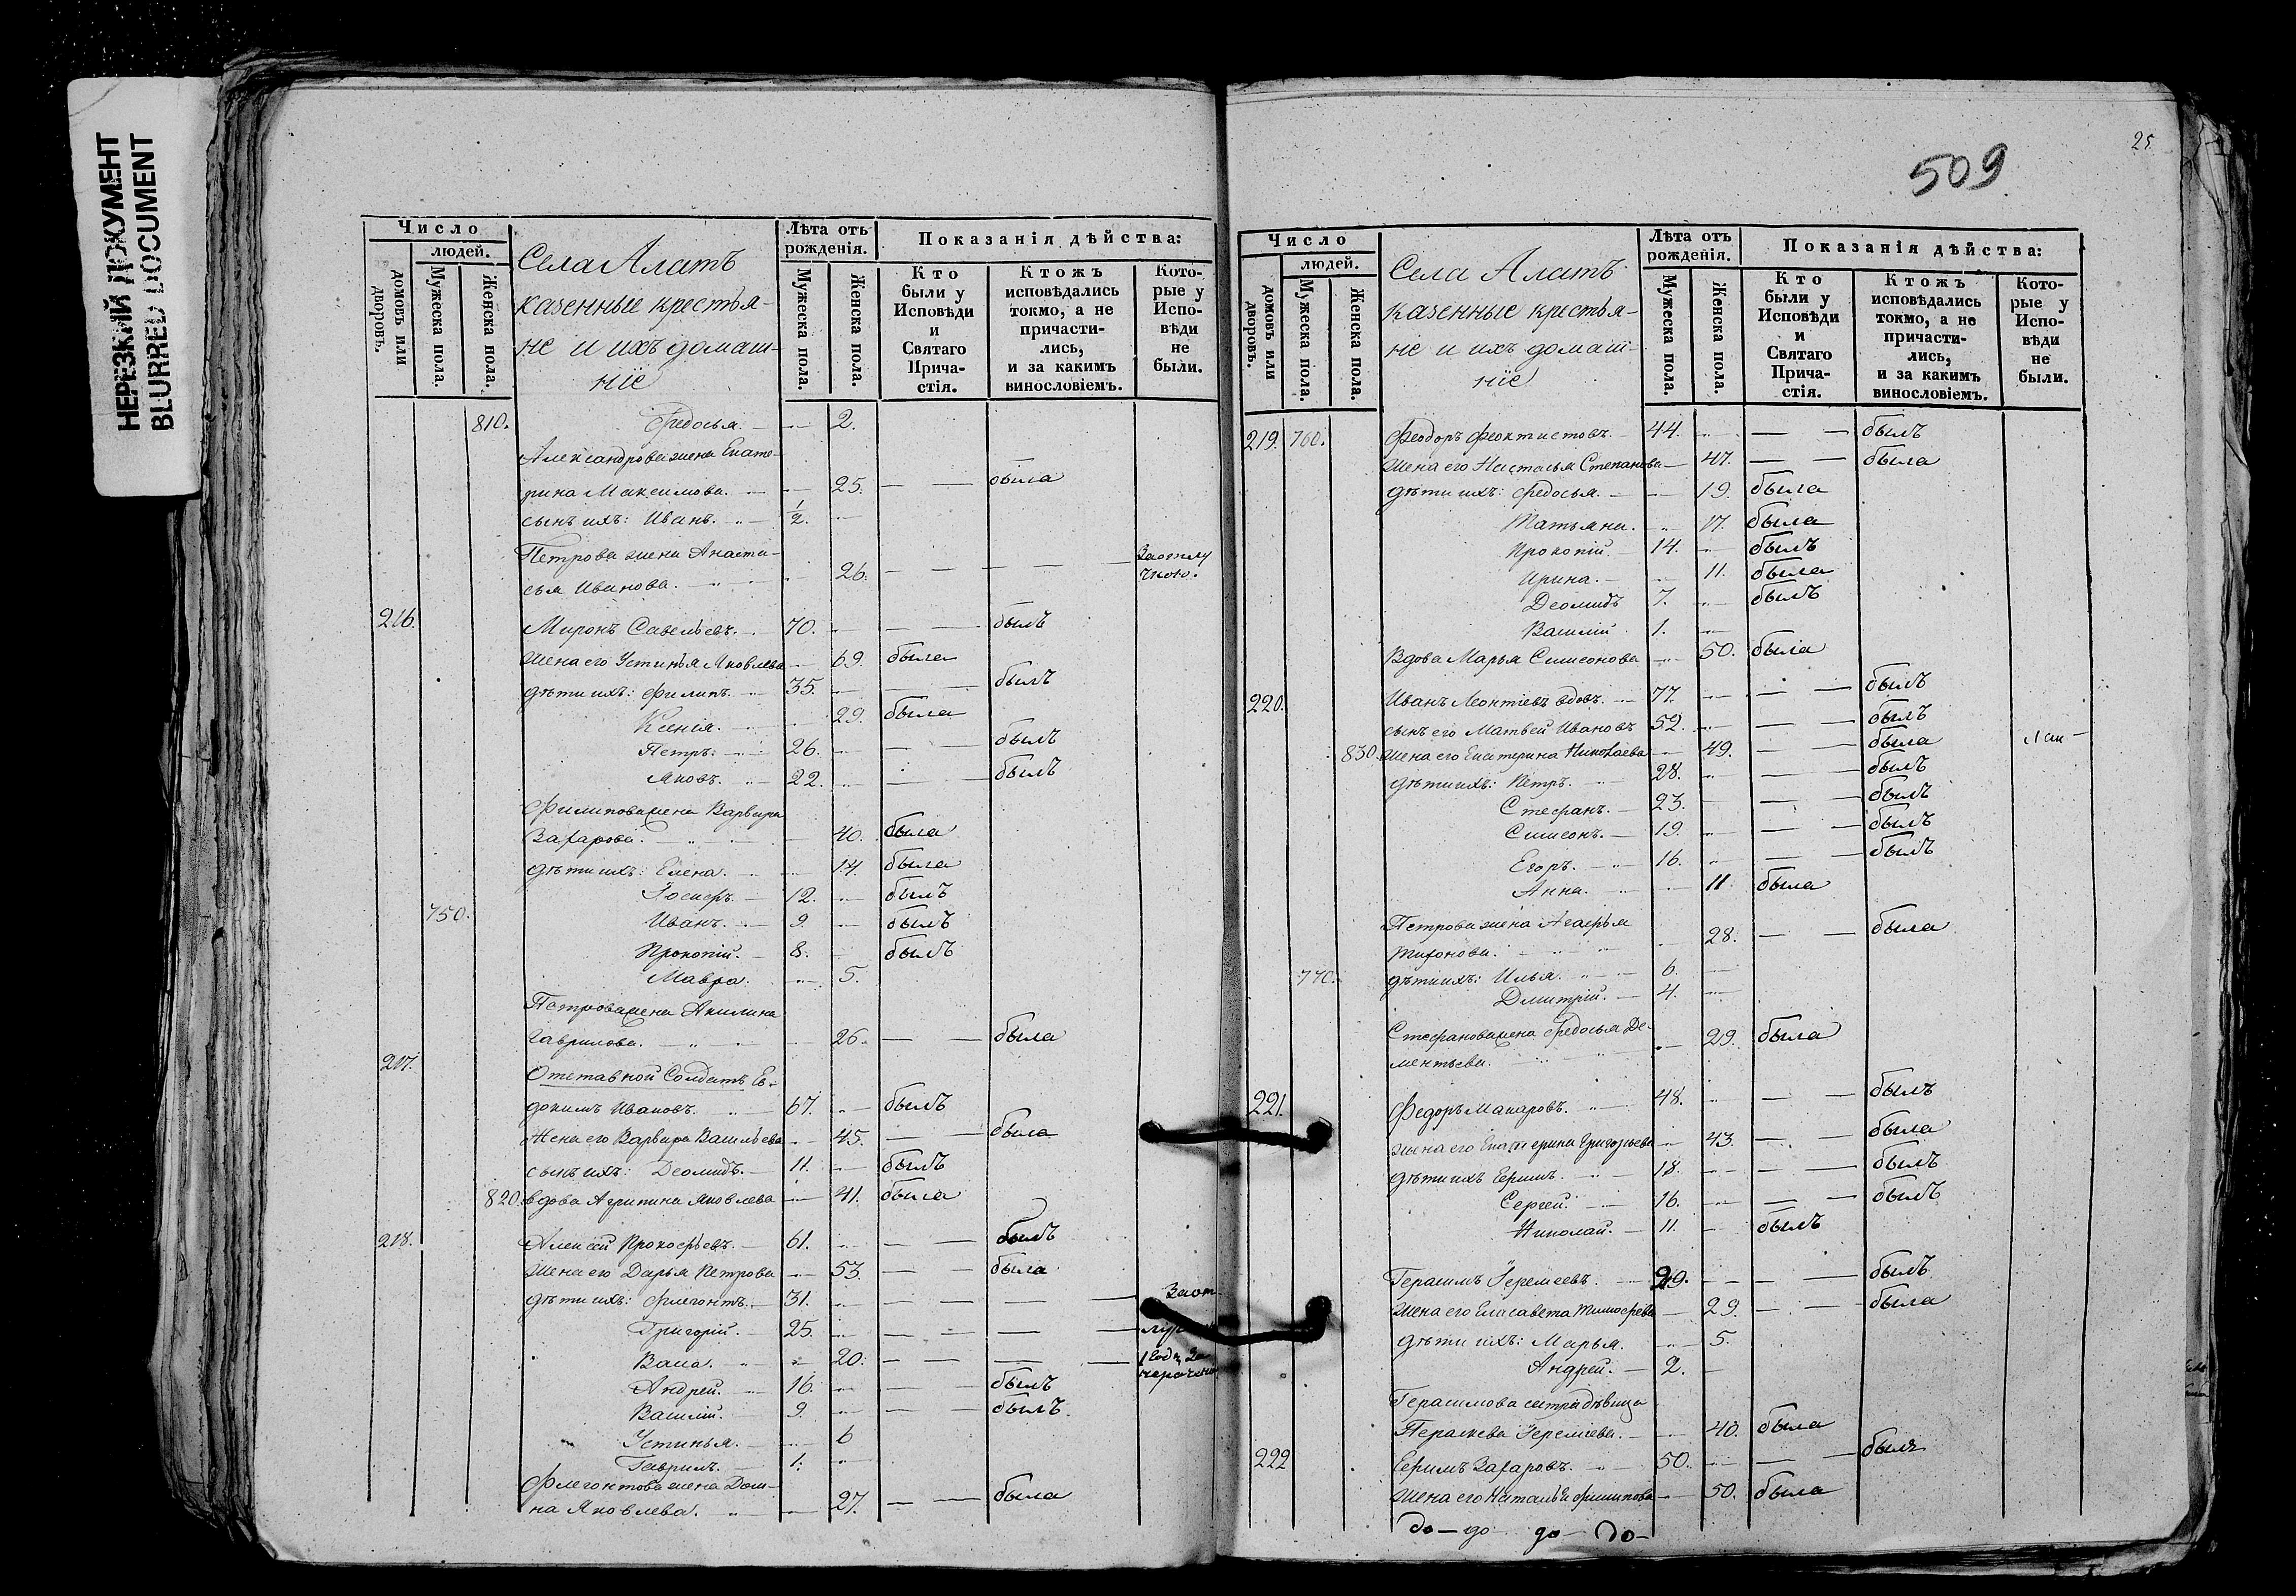 НЕРЕЗКИЙ ДОКУМЕНТ
BLURRED DOCUMENT
Число
людей.
домовъ или дворовъ.
Мужеска пола.
Женска пола.
Села Алатъ
казенные крестья-
не и ихъ домаш-
нiе
Лѣта отъ рожденія.
Мужеска пола.
Женска пола.
Показанія дѣйства:
Кто были у Исповѣди и Святаго Причастія.
Ктожъ исповѣдались токмо, а не причастились, и за какимъ винословіемъ.
Которые у Исповѣди не были.
810. Ѳедосья. — 2.
Александрова жена Екате-
рина Максимова. — 25. — — была
сынъ ихъ: Иванъ. 1/2. —
Петрова жена Анаста-
сья Иванова. — 26. — — — —
216. Миронъ Савельевъ. 70. — — — былъ
жена его Устинья Яковлева — 69. была
дѣти ихъ: Филипъ. 35. — — — былъ
Ксенія. — 29. была
Петръ. 26. — — — былъ
Яковъ. 22. — — — былъ
Филипова жена Варвара
Захарова. — 40. была
дѣти ихъ: Елена. — 14. была
Іосифъ. 12. — былъ
750. Иванъ. 9. — былъ
Прокопій. 8. — былъ
Мавра. — 5.
Петрова жена Акилина
Гаврилова. — 26. — — была
217. Отставной Солдатъ Ев-
докимъ Ивановъ. 67. — былъ
Жена его Варвара Васильева — 45. — — была
сынъ ихъ: Деомидъ. 11. — былъ
820. вдова Агрипина Яковлева — 41. была
218. Алексей Прокофьевъ. 61. — — — былъ
жена его Дарья Петрова — 53. — — была
дѣти ихъ: Флегонтъ. 31. — — — — —
Григорій. 25. — — — — —
Васа. — 20. — — — —
Андрей. 16. — — — былъ
Василій. 9. — — — былъ
Устинья. — 6
Гаврилъ. 1. —
Флегонтова жена Дом-
на Яковлева. — 27. — — была
25
509
Число
людей.
домовъ или дворовъ.
Мужеска пола.
Женска пола.
Села Алатъ
казенные крестья-
не и ихъ домаш-
нiе
Лѣта отъ рожденія.
Мужеска пола.
Женска пола.
Показанія дѣйства:
Кто были у Исповѣди и Святаго Причастія.
Ктожъ исповѣдались токмо, а не причастились, и за какимъ винословіемъ.
Которые у Исповѣди не были.
219. 760. Феодоръ Феоктистовъ. 44. — — — былъ
жена его Настасья Степанова — 47. — — была
дѣти ихъ: Ѳедосья. — 19. была
Татьяна. — 17. была
Прокопій. 14. — былъ
Ирина. — 11. была
Деомидъ 7. — былъ
Василій 1. —
Вдова Марья Симеонова — 50. была
220. Иванъ Леонтіевъ вдовъ. 77. — — — былъ
сынъ его Матвей Ивановъ 52. — — — былъ
830. жена его Екатерина Николаева — 49. — — была
дѣти ихъ: Петръ. 28. — — — былъ
Стефанъ. 23. — — — былъ
Симеонъ. 19. — — — былъ
Егоръ. 16. — — — былъ
Анна. — 11. была
Петрова жена Агафья
Тихонова. — 28. — — была
770. дѣти ихъ: Илья. 6. —
Дмитрій. 4. —
Стефанова жена Ѳедосья Де-
ментьева. — 29. была
221. Федоръ Макаровъ. 48. — — — былъ
жена его Екатерина Григорьева — 43. — — была
дѣти ихъ Ефимъ. 18. — — — былъ
Сергей. 16. — — — былъ
Николай. 11. — былъ
Герасимъ Іеремеевъ. 29. — — — былъ
жена его Елисавета Тимофеева — 29. — — была
дѣти ихъ: Марья. — 5.
Андрей. 2. —
Герасимова сестра дѣвица
Параскева Іеремеева. — 40. была
222 Ефимъ Захаровъ. 50. — — — былъ
жена его Наталья Филипова — 50. была
до- до- до- до-